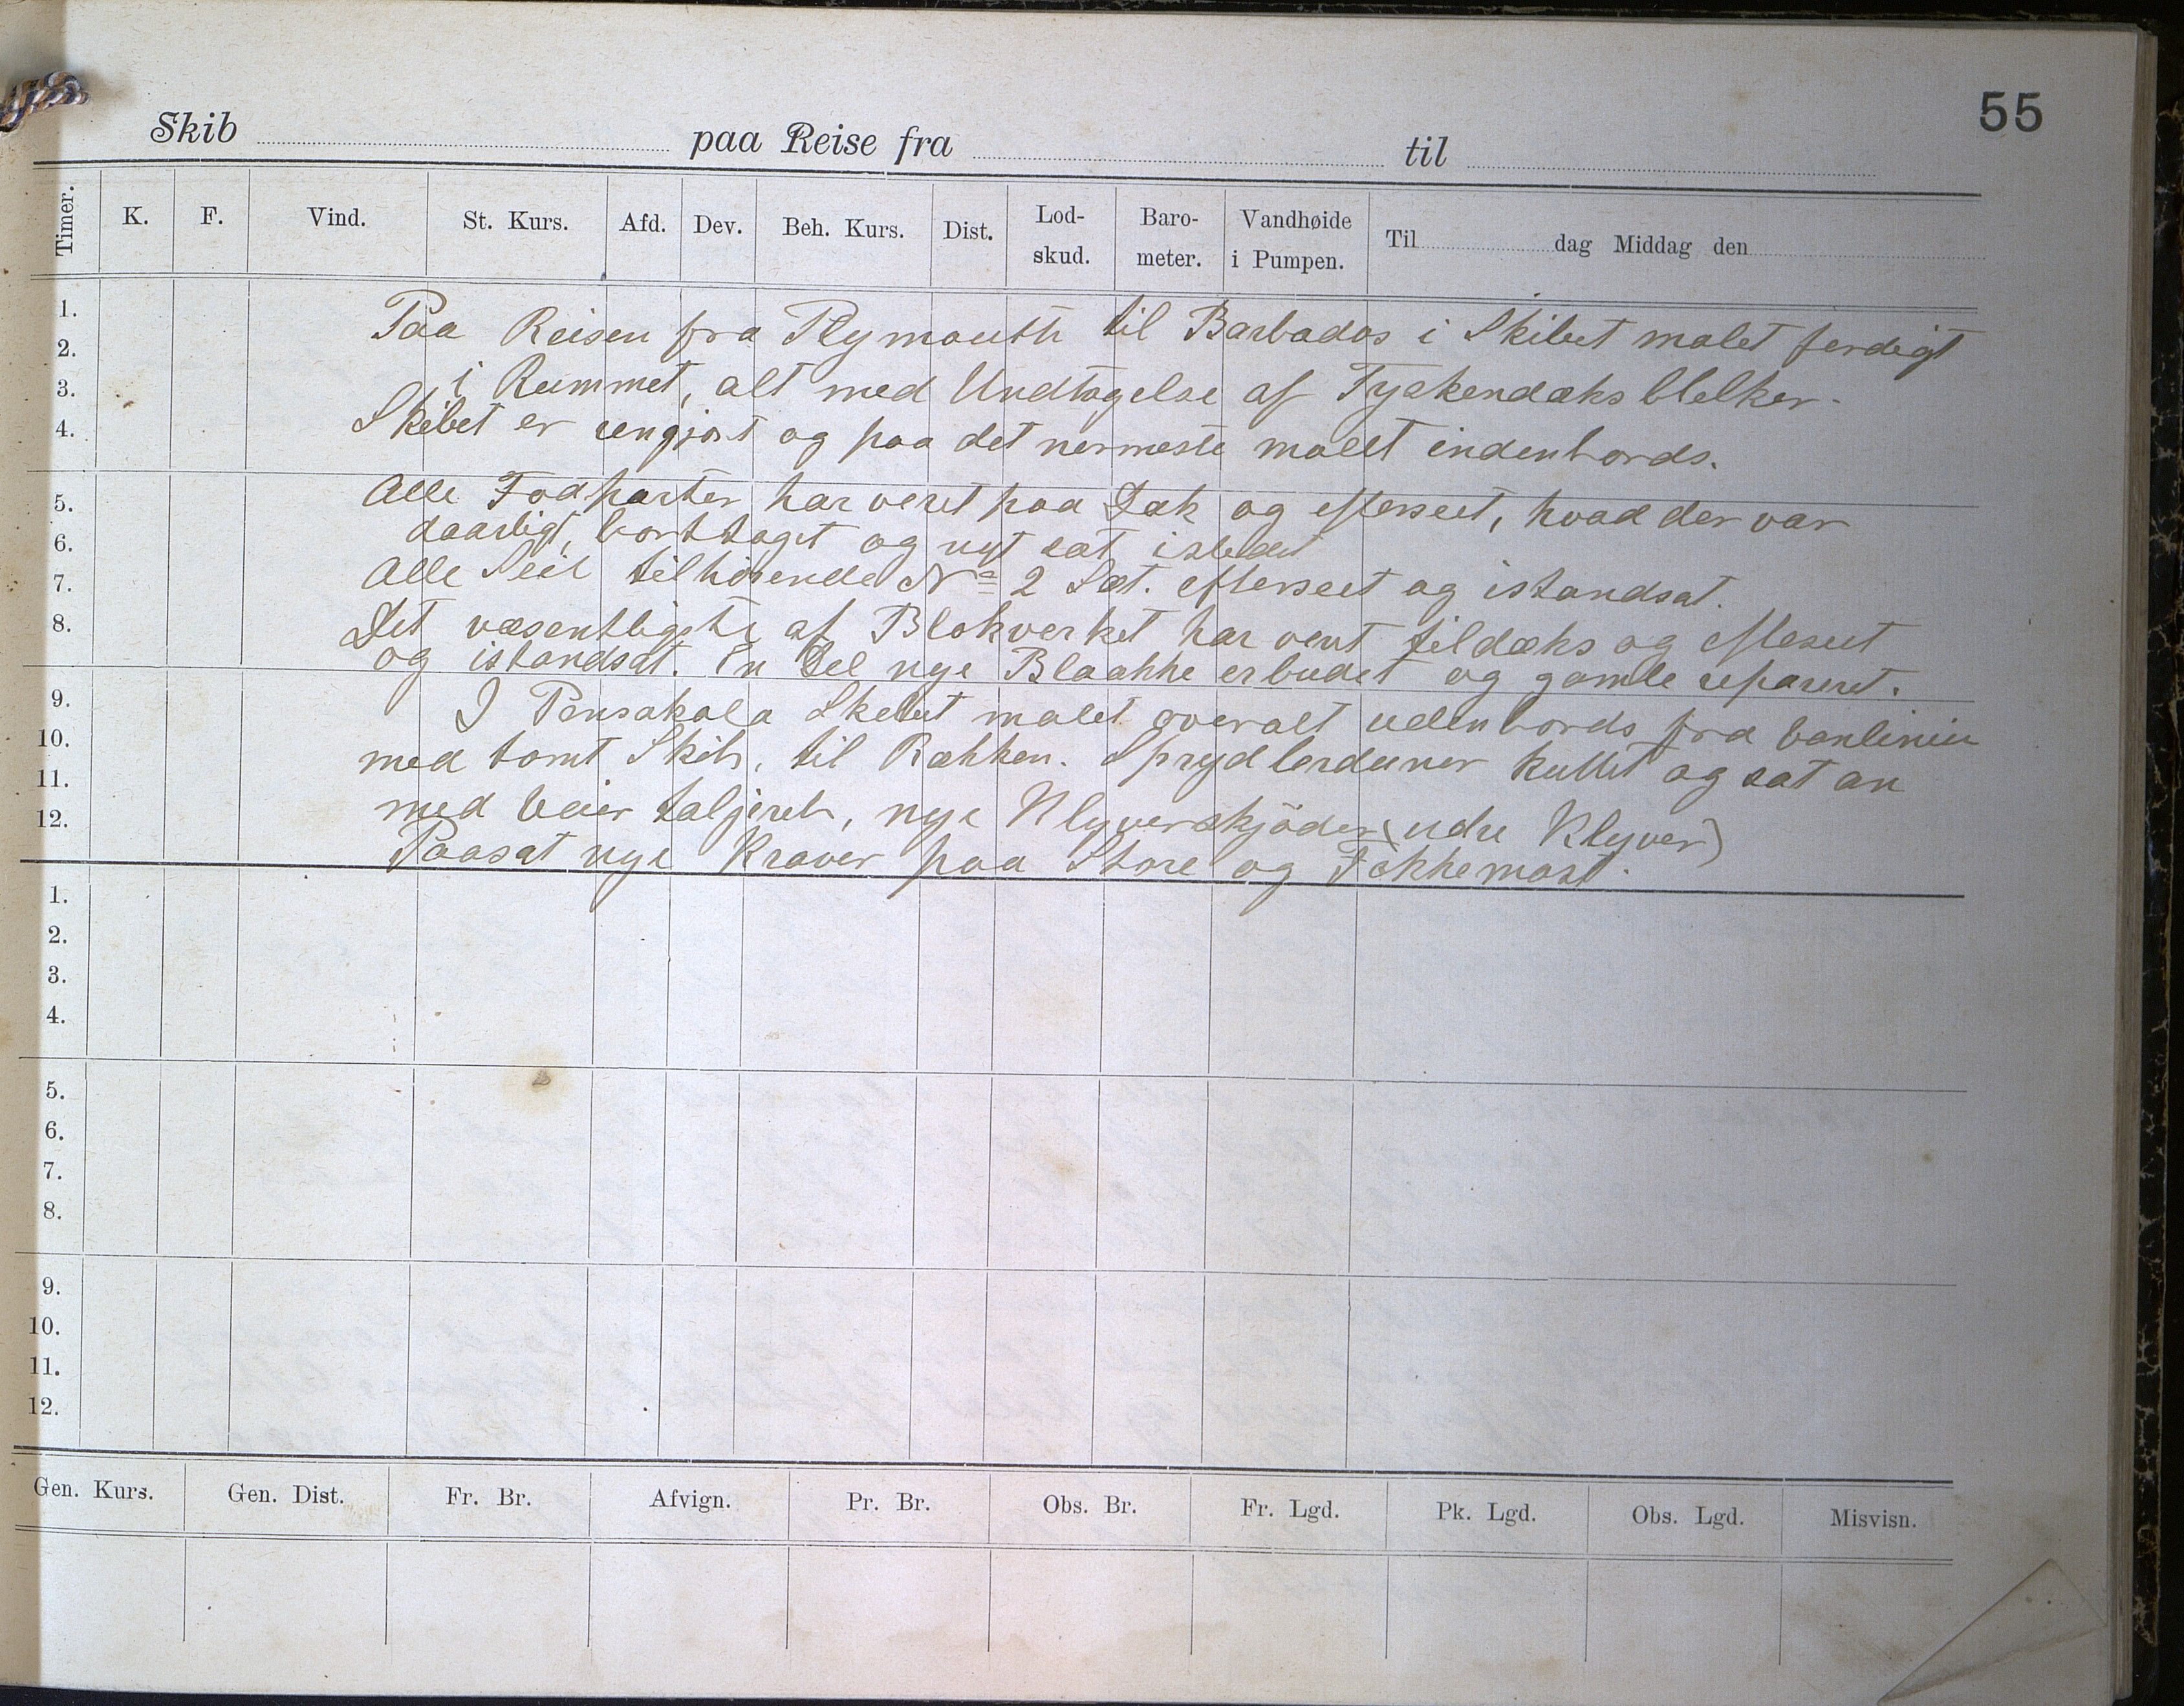 55
Skib paa Reise fra til
Timer. K. F. Vind. St. Kurs. Afd. Dev. Beh. Kurs. Dist. Lod-skud. Baro-meter. Vandhøide i Pumpen. Til dag Middag den
1.
2.
3.
4.
5.
6.
7.
8.
9.
10.
11.
12.
Paa Reisen fra Plymouth til Barbados i Skibet malet ferdigt
i Rummet, alt med Undtagelse af
Skibet er rengjort og paa det nermeste malet indenbords.
Alle Fodparter har veret paa Dæk og efterseet, hvad der var
daarligt, borttaget og nyt sat istedet
Alle Seil tilhørende No 2 Sæt. efterseet og istandsat.
Det væsentligste af Blokverket har veret tildæks og efterseet
og istandsat. En Del nye er og gamle reparert.
I Pensakola Skibet malet overalt udenbords fra vanlinien
med tomt Skib, til Rækken. Spryd barduner kuttet og sat an
med veier taljereb, nye Klyverskjöder (udre Klyver)
Paasat nye Kraver paa Store og Fokkemast.
1.
2.
3.
4.
5.
6.
7.
8.
9.
10.
11.
12.
Gen. Kurs. Gen. Dist. Fr. Br. Afvign. Pr. Br. Obs. Br. Fr. Lgd. Pk. Lgd. Obs. Lgd. Misvisn.